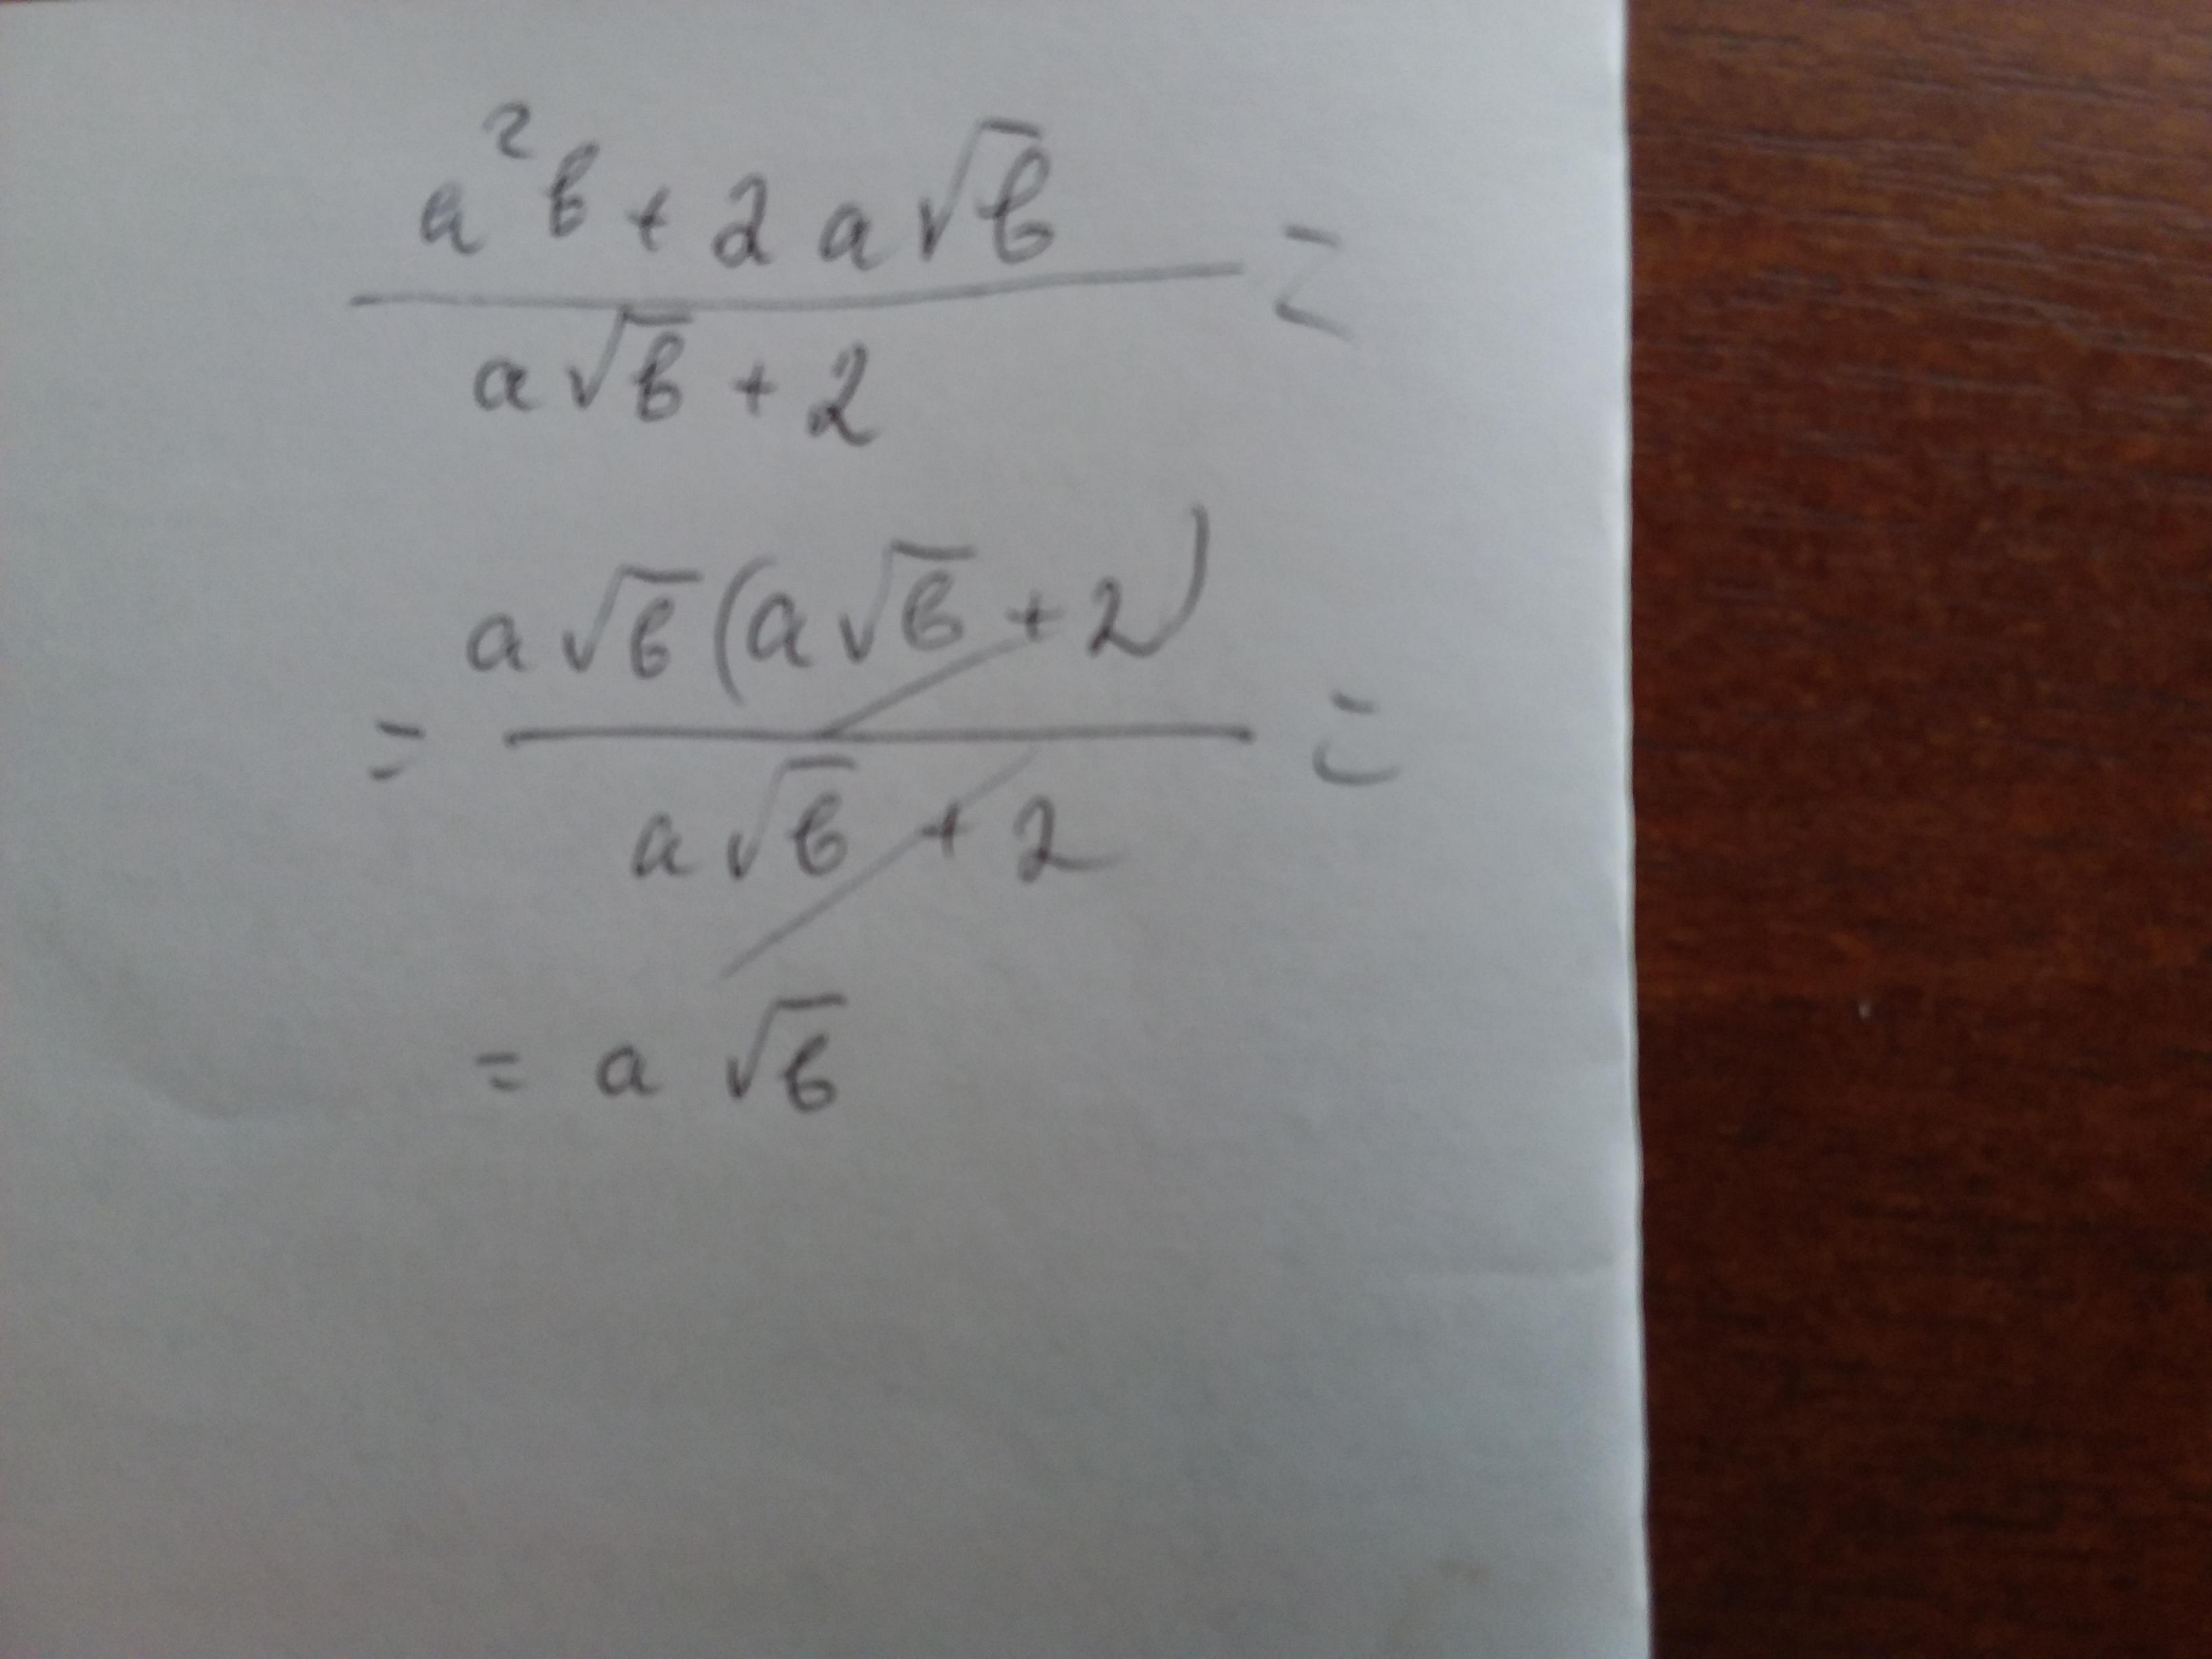 a²b + 2a√b
a√b + 2 =
= a√b(a√b + 2)
a√b + 2 =
= a√b